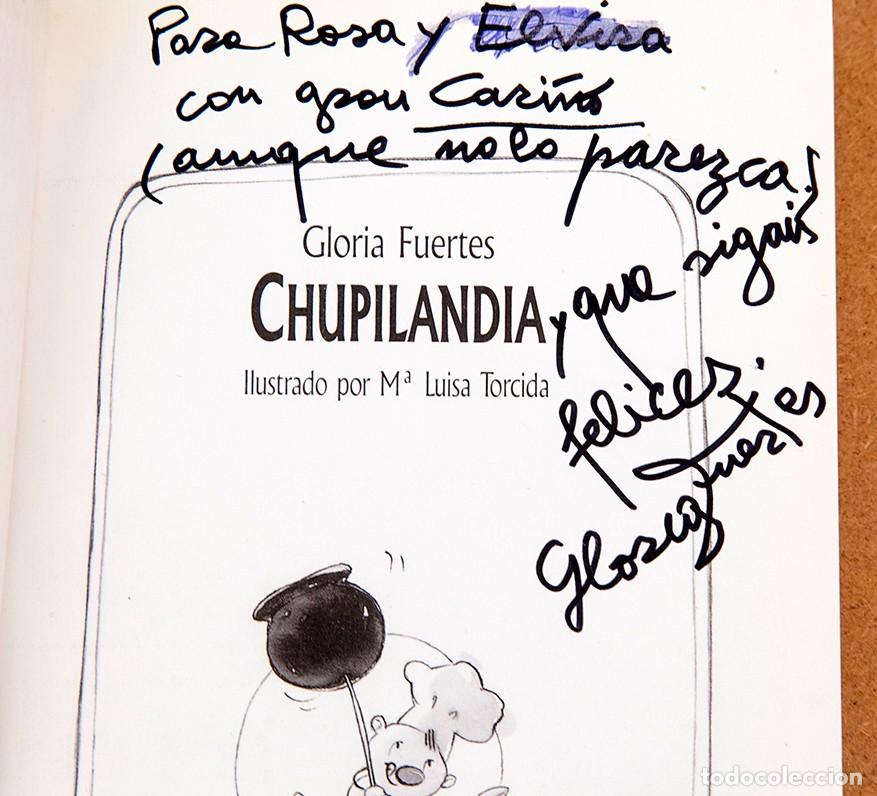 Para Rosa y Elvira
con gran Cariño
(aunque no lo parezca!
y que sigais
felices.
Gloria Fuertes
Gloria Fuertes
CHUPILANDIA
Ilustrado por Mª Luisa Torcida
todocoleccion